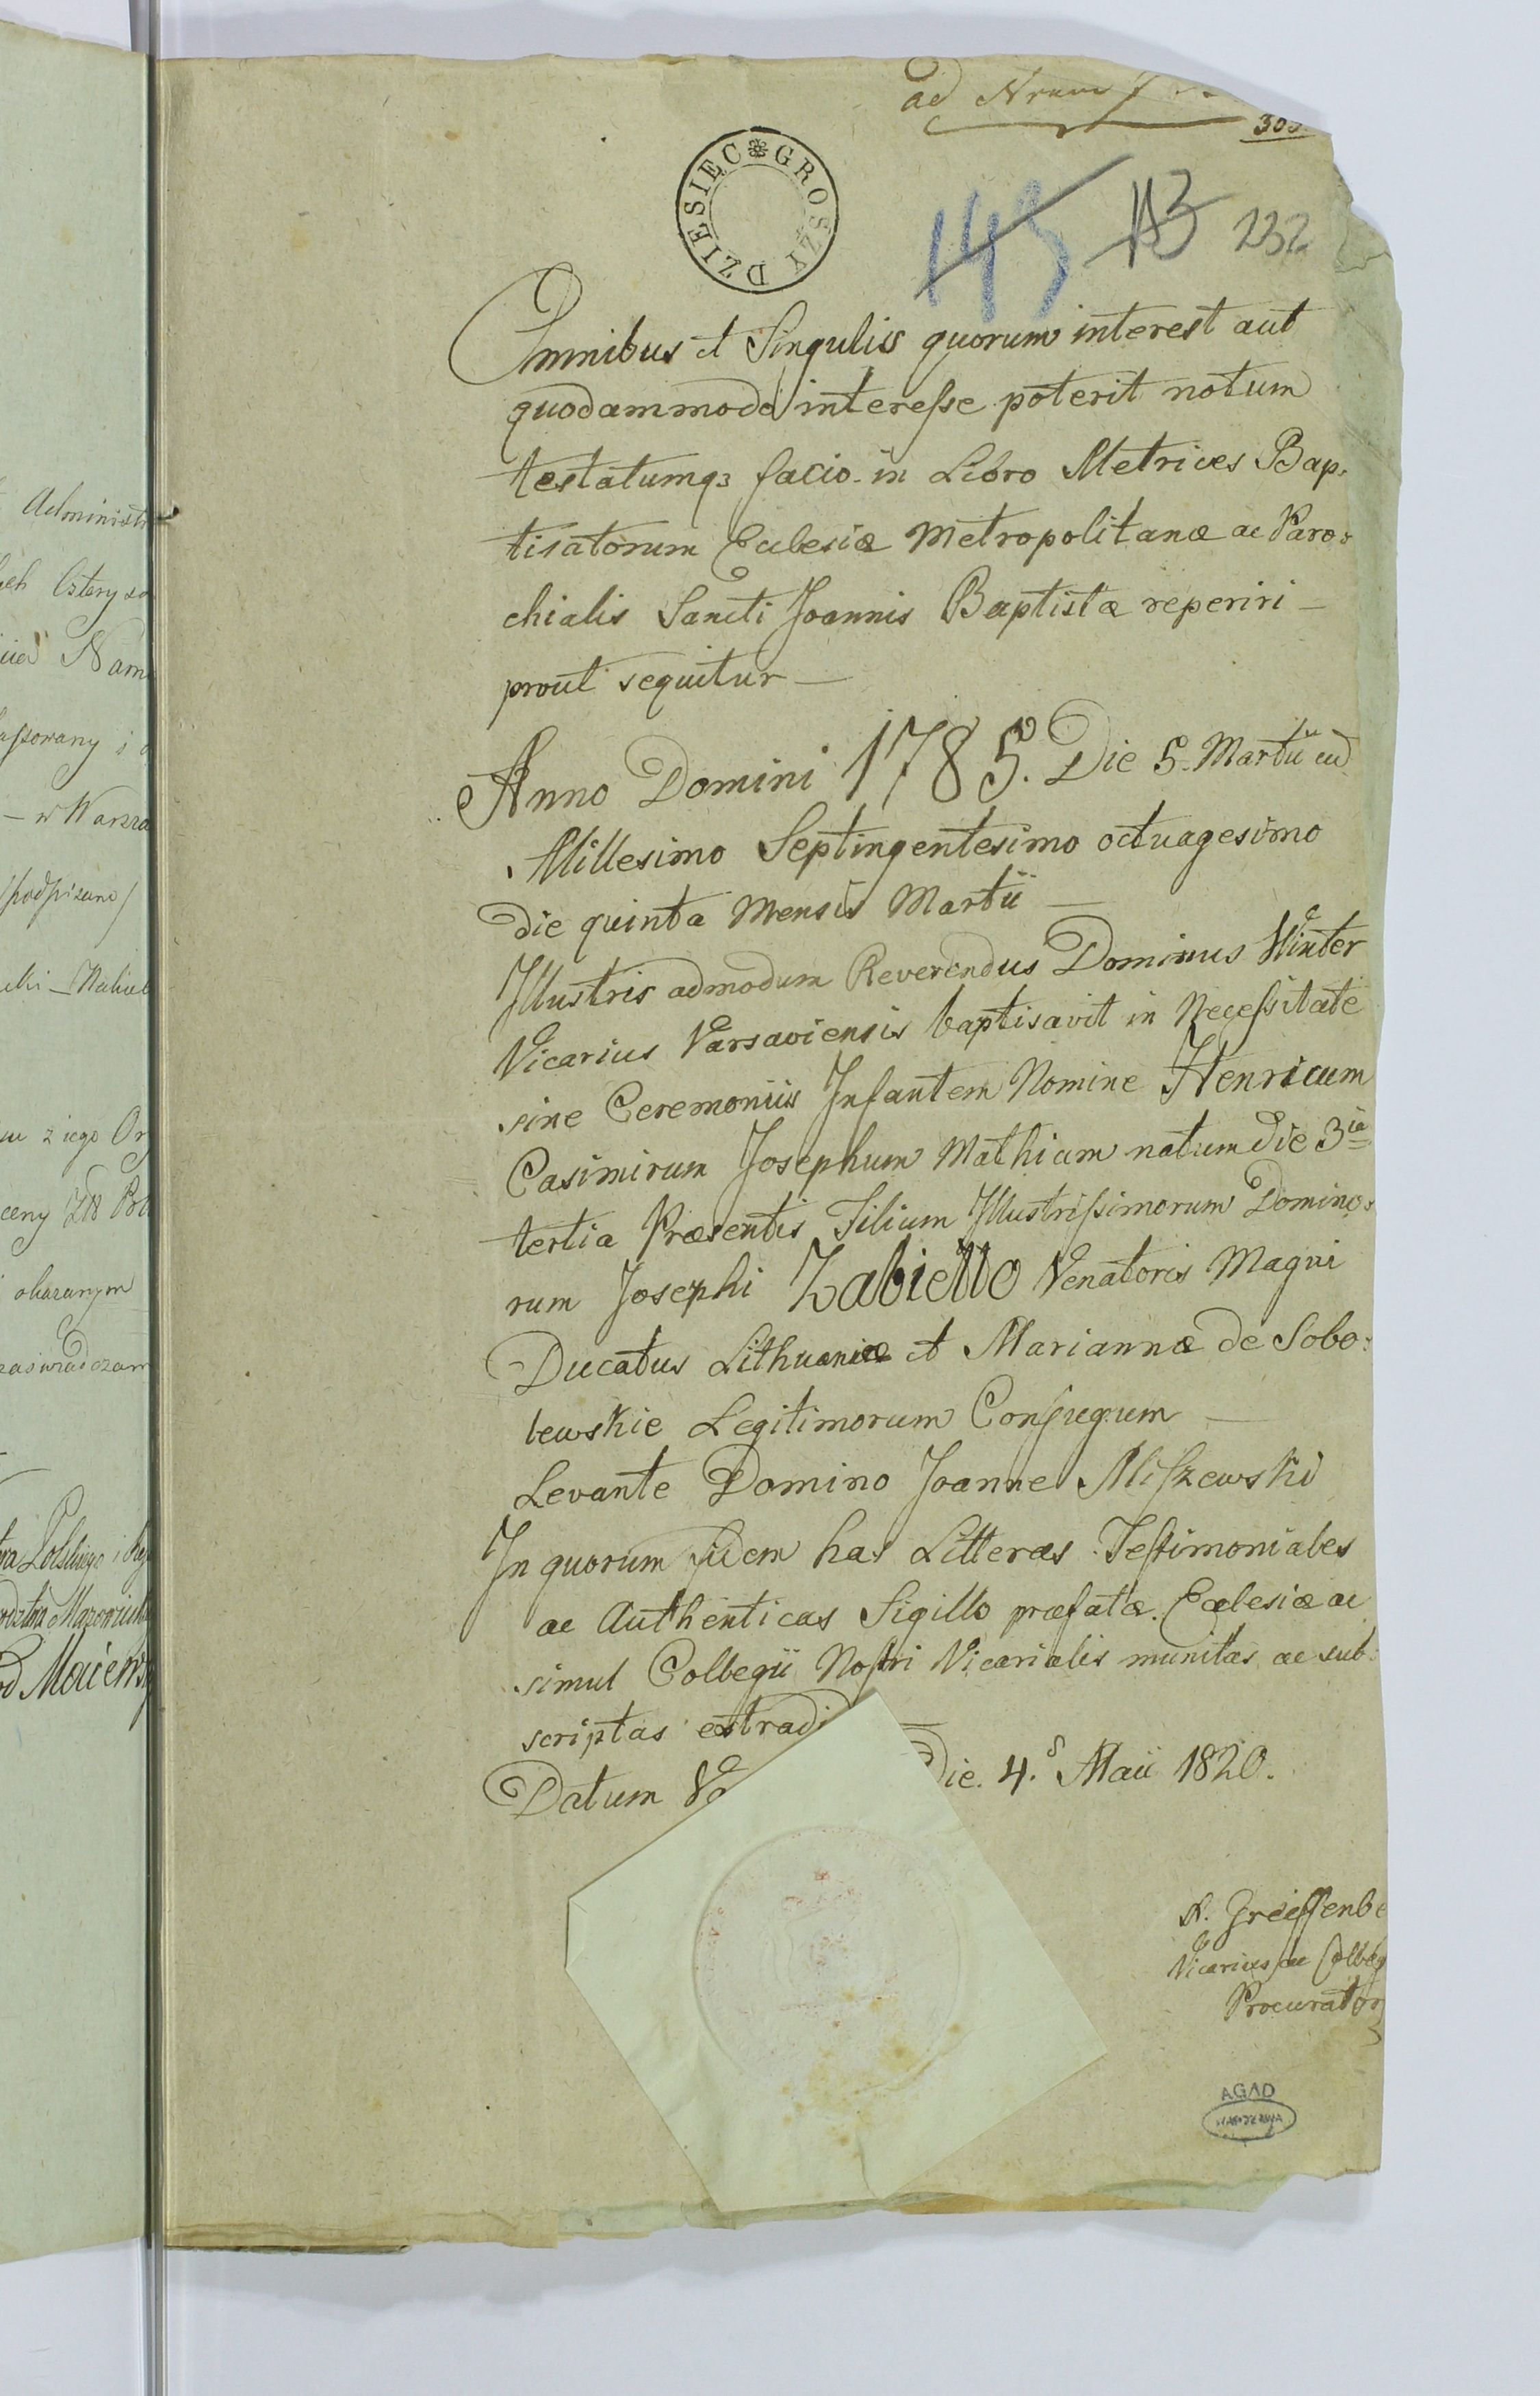 ad Nrum
303
DZIESIĘC GROSZY
145 113 232
Omnibus et Singulis quorum interest aut
quodammodo interesse poterit notum
testatumqȝ facio in Libro Metrices Bap:
tisatorum Eclesiæ Metropolitanæ ac Paro:
chialis Sancti Joannis Baptistæ reperiri –
prout sequitur –
Anno Domini 1785. Die 5. Martii
Millesimo Septingentesimo octuagesimo
die quinta Mensis Martii –
Illustris admodum Reverendus Dominus Winter
Vicarius Varsaviensis baptisavit in Necessitate
sine Ceremoniis Infantem Nomine Henricum
Casimirum Josephum Mathiam natum die 3ia
tertia Præsentis Filium Illustrissimorum Domino:
rum Josephi Zabiełło Venatoris Magni
Ducatus Lithuaniæ et Mariannæ de Sobo:
lewskie Legitimorum Conjugum –
Levante Domino Joanne Miszewski
In quorum fidem has Litteras Testimoniales
ac Authenticas Sigillo præfatæ Eclesiæ ac
simul Collegii Nostri Vicarialis munitas ac sub:
scriptas extradi
Datum Va Die. 4. Maii 1820.
Greiffenbe
Vicarius ac Colleg
Procurator
AGAD
WARSZAWA
Administr
Cztery
Nam
w Warsza
podpisano
z iego Or
ceny
okazanym
zaświadczam
Polskiego i
Mazowieck